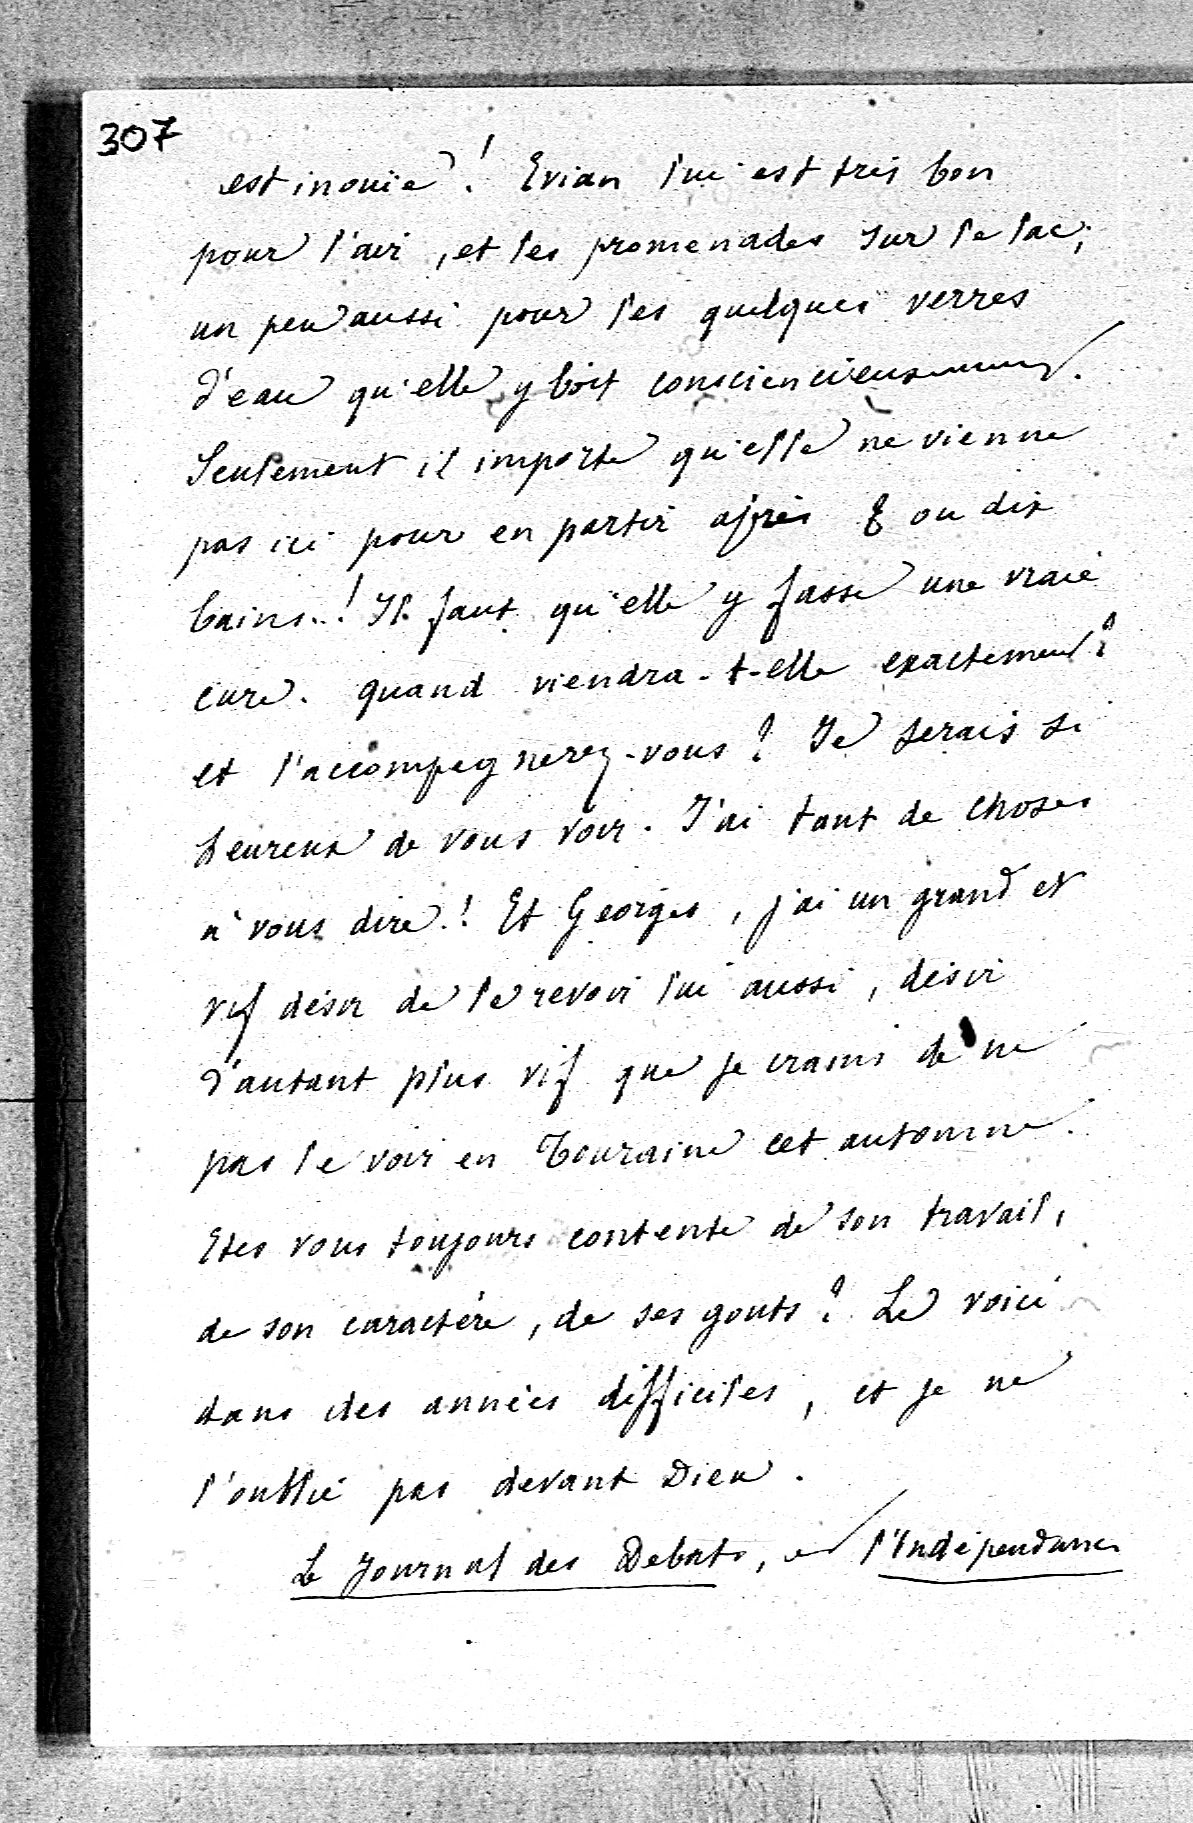 307
est inouïe ! Evian lui est très bon
pour l'air, et les promenades sur le lac ;
un peu aussi pour les quelques verres
d'eau qu'elle y boit consciencieusement.
Seulement il importe qu'elle ne vienne
pas ici pour en partir après 8 ou dix
bains..! Il faut qu'elle y fasse une vraie
cure. quand viendra-t-elle exactement ?
et l'accompagnerez-vous ? Je serais si
heureux de vous voir. J'ai tant de choses
à vous dire ! Et Georges, j'ai un grand et
vif désir de le revoir lui aussi, désir
d'autant plus vif que je crains de ne
pas le voir en Touraine cet automne.
Etes vous toujours contente de son travail,
de son caractère, de ses gouts ? Le voici
dans des années difficiles, et je ne
l'oublie pas devant Dieu.
Le Journal des Debats, et l'Indépendance